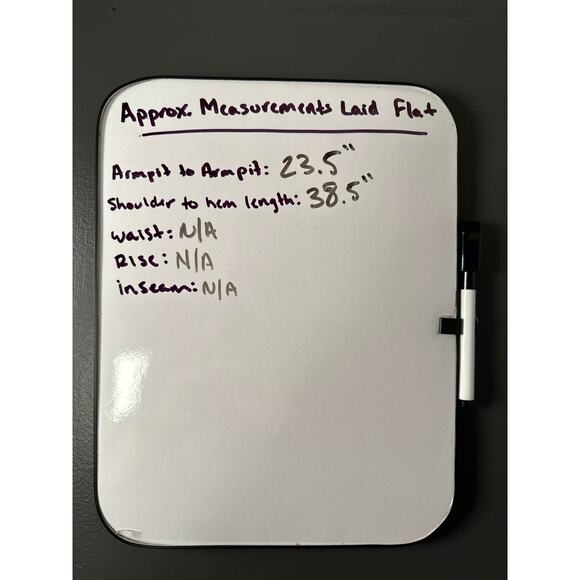 Approx. Measurements Laid Flat
Armpit to Armpit: 23.5"
Shoulder to hem length: 38.5"
waist: N/A
Rise: N/A
inseam: N/A